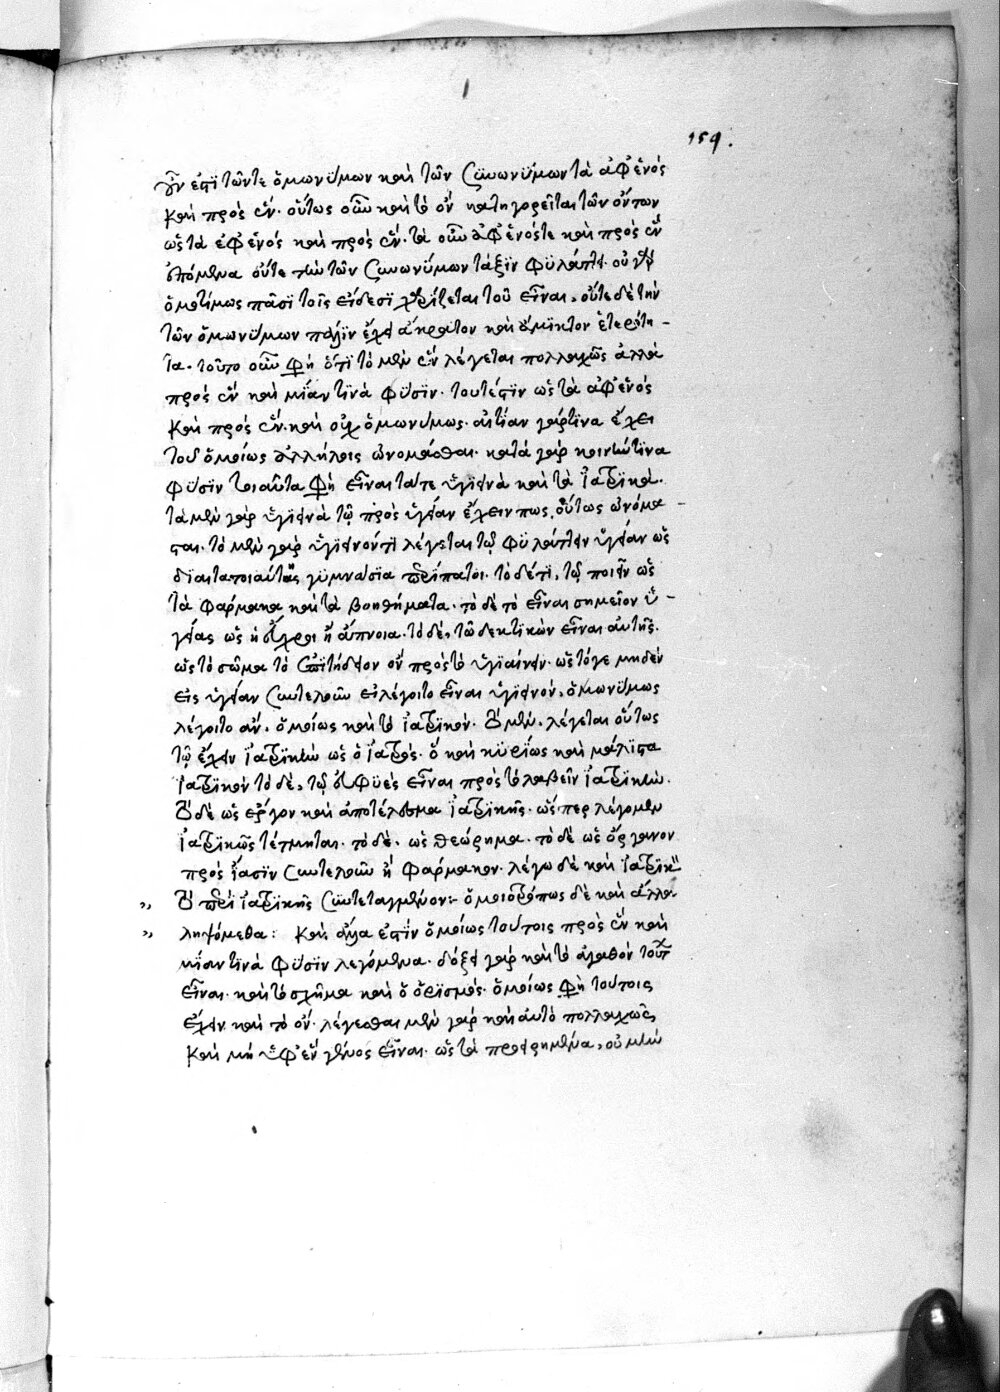 159.
οὖν ἐπὶ τῶν τε ὁμωνύμων καὶ τῶν συνωνύμων τὰ ἀφ' ἑνός
καὶ πρὸς ἕν. οὕτως οὖν καὶ τὸ ὂν κατηγορεῖται τῶν ὄντων
ὡς τὰ ἀφ' ἑνός καὶ πρὸς ἕν. τὰ οὖν ἀφ' ἑνός τε καὶ πρὸς ἓν
λεγόμενα οὔτε τὴν τῶν συνωνύμων τάξϊν φϋλάττει. οὐ γὰρ
ὁμοτίμως πᾶσϊ τοῖς εἴδεσϊ μερίζεται τοῦ εἶναι, οὔτε δὲ τὴν
τῶν ὁμωνύμων πάλϊν ἔχει ἄκρατον καὶ ἄμϊκτον ἑτερότη-
τα. τοῦτο οὖν φησὶ ὅτι τὸ μὲν ἓν λέγεται πολλαχῶς ἀλλὰ
πρὸς ἓν καὶ μΐαν τϊνὰ φύσϊν. τουτέστϊν ὡς τὰ ἀφ' ἑνός
καὶ πρὸς ἕν. καὶ οὐχ ὁμωνύμως. αἰτίαν γάρ τϊνα ἔχει
τοῦ ὁμοίως ἀλλήλοις ὠνομάσθαι. κατὰ γὰρ κοινήν τϊνα
φύσϊν τοιαῦτα φησὶ εἶναι τά τε ὑγϊεινὰ καὶ τὰ ἰατρϊκά.
τὰ μὲν γὰρ ὑγϊεινὰ τῷ πρὸς ὑγείαν ἔχειν πως, οὕτως ὠνόμα-
σται. τὸ μὲν γὰρ ὑγϊεινόν τϊ λέγεται τῷ φϋλάττειν ὑγείαν ὡς
δίαιτα ποιαύτη γϋμνάσϊα περίπατοι. τὸ δέ τϊ, τῷ ποιεῖν ὡς
τὰ φάρμακα καὶ τὰ βοηθήματα. τὸ δὲ τὸ εἶναι σημεῖον ὑ-
γείας ὡς ἡ εὔχροι ἢ εὔπνοια. τὸ δὲ, τῷ δεκτϊκὸν εἶναι αὐτῆς.
ὡς τὸ σῶμα τὸ ἐπϊτήδειον ὂν πρὸς τὸ ὑγϊαίνειν. ὡς τό γε μηδὲν
εἰς ὑγείαν συντελοῦν εἰ λέγοιτο εἶναι ὑγϊεινόν, ὁμωνύμως
λέγοιτο ἄν. ὁμοίως καὶ τὸ ἰατρϊκόν. τὸ μὲν, λέγεται οὕτως
τῷ ἔχειν ἰατρϊκὴν ὡς ὁ ἰατρός. ὃ καὶ κϋρΐως καὶ μάλϊστα
ἰατρϊκόν τὸ δὲ, τῷ εὐφϋὲς εἶναι πρὸς τὸ λαβεῖν ἰατρϊκήν.
τὸ δὲ ὡς ἔργον καὶ ἀποτέλεσμα ἰατρϊκῆς. ὥσπερ λέγομεν
ἰατρϊκῶς τέτμηται. τὸ δὲ, ὡς θεώρημα. τὸ δὲ ὡς ὄργανον
πρὸς ἴασϊν συντελοῦν ἢ φάρμακον. λέγω δὲ καὶ ἰατρϊκὸν
τὸ περὶ ἰατρϊκῆς συντεταγμένον:- ὁμοιοτρόπως δὲ καὶ ἄλλα
ληψόμεθα: καὶ ἄλλα ἐστϊν ὁμοίως τούτοις πρὸς ἓν καὶ
μΐαν τϊνὰ φύσϊν λεγόμενα. δόξει γὰρ καὶ τὸ ἀγαθὸν τοῦτ
εἶναι. καὶ τὸ σχῆμα καὶ ὁ ὁρϊσμός. ὁμοίως φησὶ τούτοις
ἔχειν καὶ τὸ ὄν. λέγεσθαι μὲν γὰρ καὶ αὐτὸ πολλαχῶς
καὶ μὴ ὑφ' ἓν γένος εἶναι. ὡς τὰ προειρημένα, οὐ μὴν